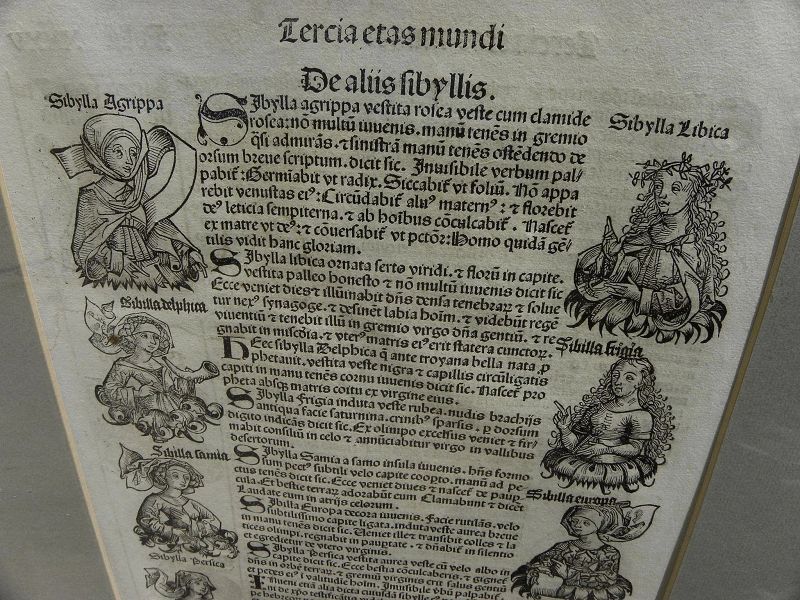 Tercia etas mundi
De aliis sibyllis.
Sibylla Agrippa
SJbylla agrippa vestita rosea veste cum clamide
rosea: nõ multũ iuuenis. manũ tenẽs in gremio
q̃si admirãs. ⁊ sinistrã manũ tenẽs ostẽdendo de
orsum breue scriptum. dicit sic. Inuisibile verbum pal/
pabit᷑: Germiabit vt radix. Siccabit᷑ vt foliũ. Nõ appa
rebit venustas eiꝰ: Circũdabit᷑ aluꝰ maternꝰ: ⁊ florebit
deꝰ leticia sempiterna. ⁊ ab hoĩbus cõculcabit᷑. Nascet᷑
ex matre vt deꝰ: ⁊ cõuersabit᷑ vt pctõr: Homo quidã gẽ/
tilis vidit hanc gloriam.
Sibylla Libica
SJbylla libica ornata serto viridi. ⁊ florũ in capite.
vestita palleo honesto ⁊ nõ multũ iuuenis dicit sic
Ecce veniet dies ⁊ illũinabit dñs densa tenebraꝝ ⁊ solue
tur nexꝰ synagoge. ⁊ desinẽt labia hoĩm. ⁊ videbũt regẽ
viuentiũ ⁊ tenebit illũ in gremio virgo dña gentiũ. ⁊ re
gnabit in miscd̃ia. ⁊ vterꝰ matris eiꝰ erit statera cunctoꝝ.
Sibilla delphica
HEec sibylla Delphica q̃ ante troyana bella nata ꝓ
phetauit. vestita veste nigra ⁊ capillis circũligatis
capiti in manu tenẽs cornu iuuenis dicit sic. Nascet᷑ pro
pheta absqꝫ matris coitu ex virgine eius.
Sibilla frigia
SJbylla Frigia induta veste rubea. nudis brachijs
antiqua facie saturnina. crinibꝰ sparsis. ꝑ dorsum
digito indicãs dicit sic. Ex olimpo excelsus veniet ⁊ fir/
mabit consiliũ in celo ⁊ annũciabitur virgo in vallibus
desertorum.
Sibilla samia
SJbylla Samia a samo insula iuuenis. hñs formo
sum pectꝰ subtili velo capite coopto. manũ ad pe/
ctus tenẽs dicit sic. Ecce veniet diues ⁊ nascet᷑ de paup̲
cula. Et bestie terraꝝ adorabũt eum Clamabunt ⁊ dicẽt
Laudate eum in atrijs celorum.
Sibilla europa
SJbilla Europa decora iuuenis. Facie rutilãs. velo
subtilissimo capite ligata. induta veste aurea breue
in manu tenẽs dicit sic. Veniet ille ⁊ transibit colles ⁊ la
tices olimpi. regnabit in paup̲tate. ⁊ dñabit᷑ in silentio
et egredietur de vtero virginis.
Sibylla Persica
SJbylla Persica vestita aurea veste cũ velo albo in
capite dicit sic. Ecce bestia cõculcaberis. ⁊ gignet᷑
dñs in orbe terraꝝ. ⁊ gremiũ virginis erit salus gentiũ
et pedes eiꝰ ĩ valitudie hoĩm. Inuisibile v̾bũ palpabit᷑.